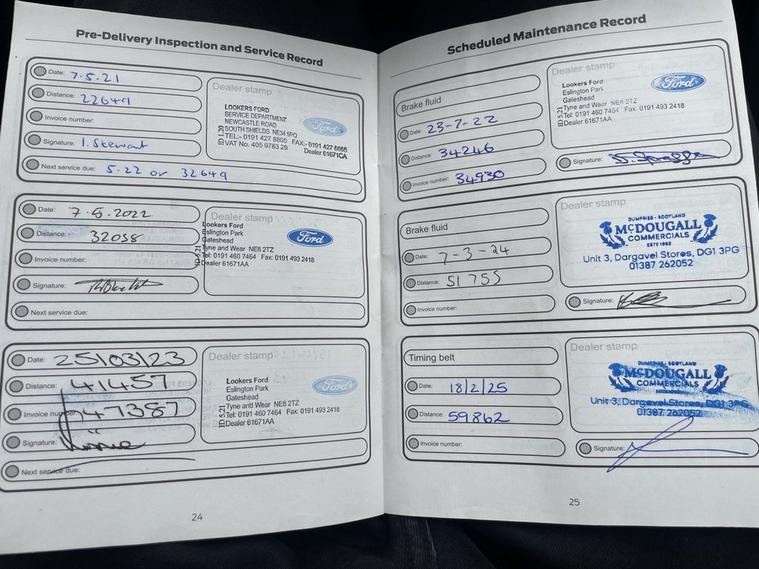 Pre-Delivery Inspection and Service Record
Date: 7.5.21
Distance: 22649
Invoice number:
Signature: I. Stewart
Next service due: 5.22 or 32649
Dealer stamp
LOOKERS FORD
SERVICE DEPARTMENT
NEWCASTLE ROAD
SOUTH SHIELDS NE34 9PQ
TEL:- 0191 427 8800 FAX:- 0191 427 8665
VAT No. 405 9783 29 Dealer 61671CA
Ford
Date: 7.5.2022
Distance: 32058
Invoice number:
Signature:
Next service due:
Dealer stamp
Lookers Ford
Eslington Park
Gateshead
Tyne and Wear NE8 2TZ
Tel: 0191 460 7464 Fax: 0191 493 2418
Dealer 61671AA
Ford
Date: 25/03/23
Distance: 41457
Invoice number: 47387
Signature:
Next service due:
Dealer stamp
Lookers Ford
Eslington Park
Gateshead
Tyne and Wear NE8 2TZ
Tel: 0191 460 7464 Fax: 0191 493 2418
Dealer 61671AA
Ford
24
Scheduled Maintenance Record
Brake fluid
Date: 23-7-22
Distance: 34246
Invoice number: 34930
Dealer stamp
Lookers Ford
Eslington Park
Gateshead
Tyne and Wear NE8 2TZ
Tel: 0191 460 7464 Fax: 0191 493 2418
Dealer 61671AA
Ford
Signature:
Brake fluid
Date: 7-3-24
Distance: 51755
Invoice number:
Dealer stamp
DUMFRIES - SCOTLAND
McDOUGALL
COMMERCIALS
Unit 3, Dargavel Stores, DG1 3PG
01387 262052
Signature:
Timing belt
Date: 18/2/25
Distance: 59862
Invoice number:
Dealer stamp
DUMFRIES - SCOTLAND
McDOUGALL
COMMERCIALS
Unit 3, Dargavel Stores, DG1 3PG
01387 262052
Signature:
25